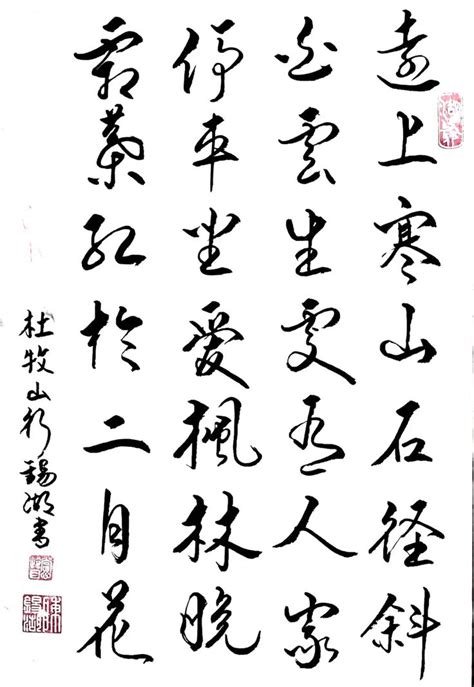 遠上寒山石径斜
白雲生處有人家
停車坐愛楓林晚
霜葉紅於二月花
杜牧山行錫湖書